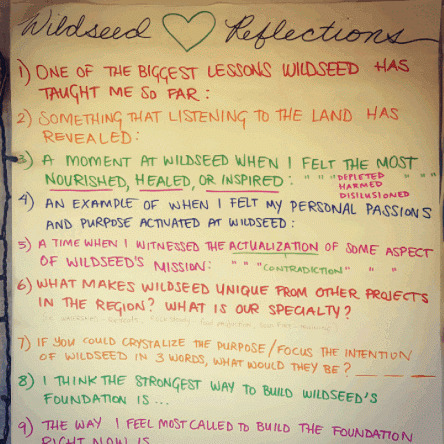 Wildseed ♡ Reflections
1) ONE OF THE BIGGEST LESSONS WILDSEED HAS
TAUGHT ME SO FAR:
2) SOMETHING THAT LISTENING TO THE LAND HAS
REVEALED:
3) A MOMENT AT WILDSEED WHEN I FELT THE MOST
NOURISHED, HEALED, OR INSPIRED: " " "DEPLETED " " "
HARMED
DISILUSIONED
4) AN EXAMPLE OF WHEN I FELT MY PERSONAL PASSIONS
AND PURPOSE ACTIVATED AT WILDSEED:
5) A TIME WHEN I WITNESSED THE ACTUALIZATION OF SOME ASPECT
OF WILDSEED'S MISSION: " " "CONTRADICTION" " "
6) WHAT MAKES WILDSEED UNIQUE FROM OTHER PROJECTS
IN THE REGION? WHAT IS OUR SPECIALTY?
7) IF YOU COULD CRYSTALIZE THE PURPOSE/FOCUS THE INTENTION
OF WILDSEED IN 3 WORDS, WHAT WOULD THEY BE? ___ ___ ___
8) I THINK THE STRONGEST WAY TO BUILD WILDSEED'S
FOUNDATION IS...
9) THE WAY I FEEL MOST CALLED TO BUILD THE FOUNDATION
RIGHT NOW IS